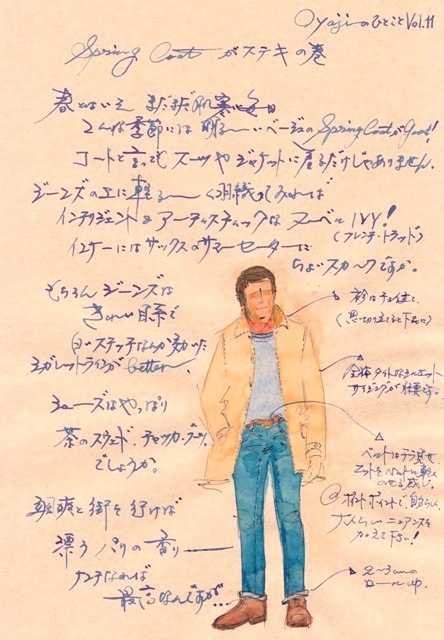 Oyajiのひとこと Vol.11
Spring Coat がステキの巻
春とはいえ まだまだ肌寒い毎日
こんな季節には 明る〜いベージュの Spring Coat が Good!
コートと言っても スーツや ジャケットに 着るだけじゃありません。
ジーンズの上に 軽る〜く羽織ってみれば
インテリジェント & アーティスティックな ヌーベル IVY!
(フレンチ・トラッド)
インナーには サックスの サマーセーターに
ちょいスカーフですか。
もちろん ジーンズは
きれい目系で
白いステッチなんか効いた
シガレットラインが better、
シューズは やっぱり
茶のスウェード、チャッカ・ブーツ、
でしょうか。
颯爽と街を行けば
漂う パリの香り——
ナンテなれば
最高なんですが…
衿はチョイ立て、
(思い切り立てると下品に)
全体タイトなシルエット
サイジングが 重要です。
ベルトは チラ見せ
ニットを ベルトに 軽く
のせる感じ。
ポイントで
大人らしいニュアンスを
加えて下さい!
2〜3cmの
ロールup.